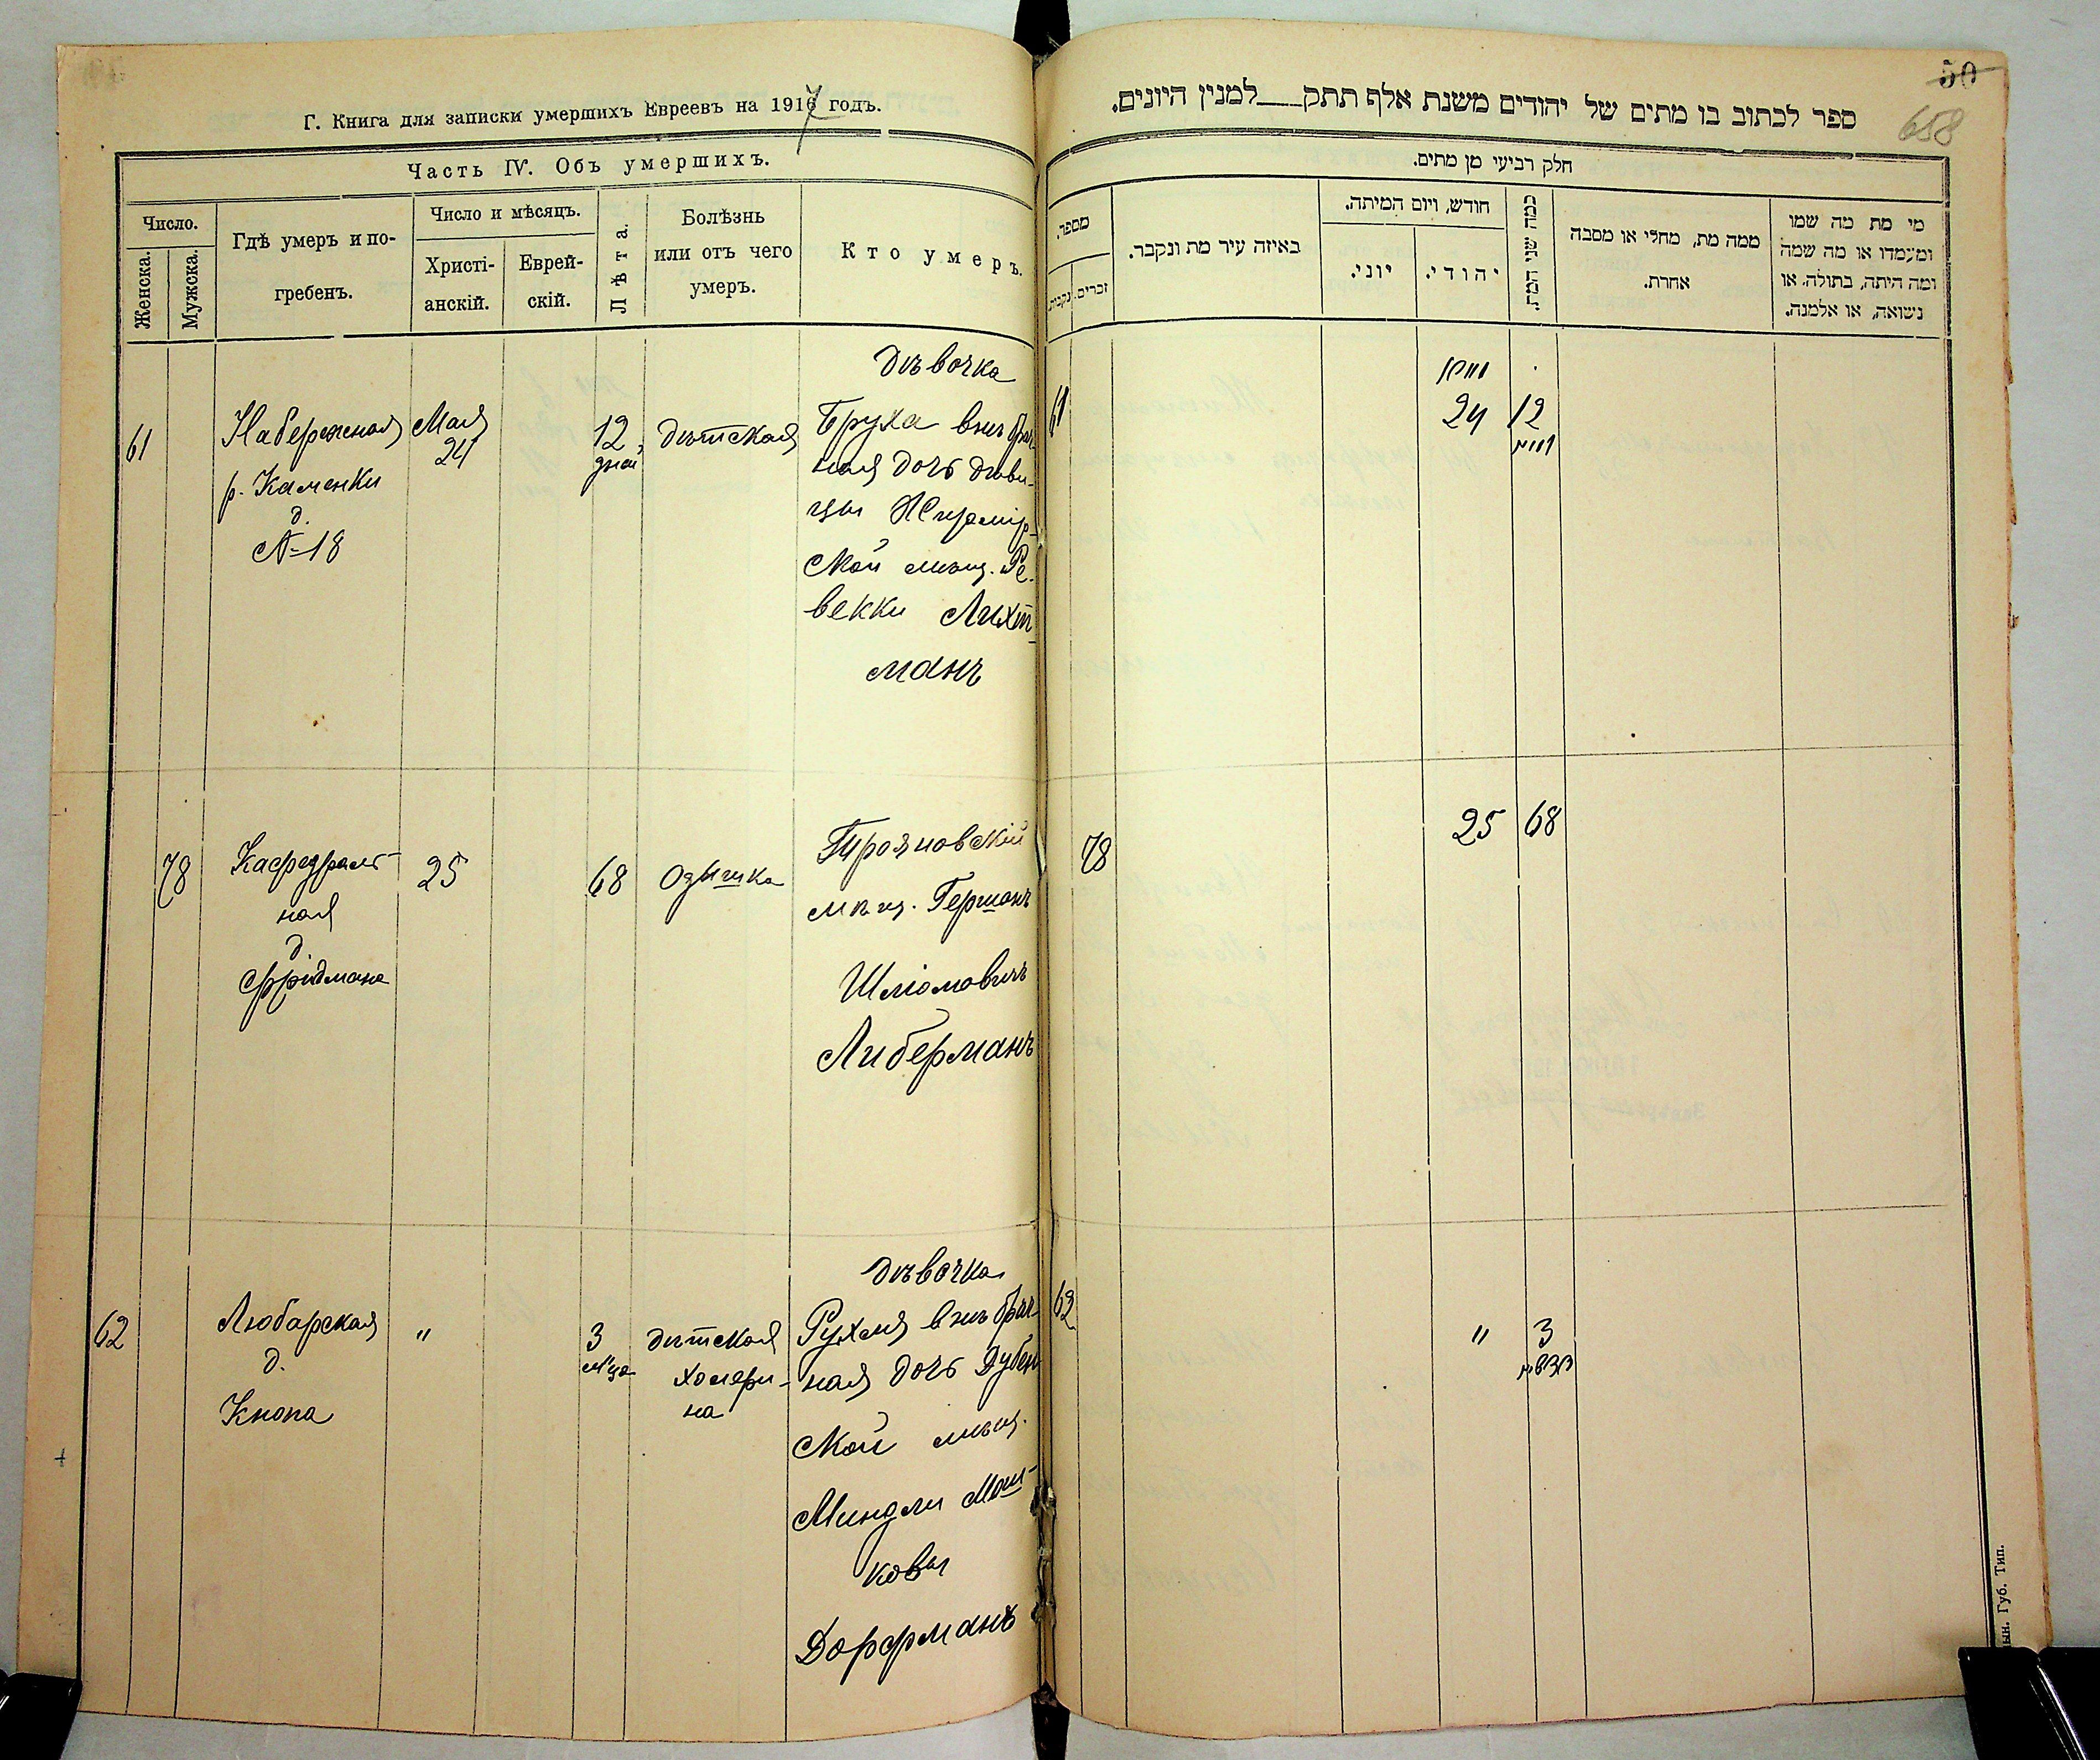 Г. Книга для записки умершихъ Евреевъ на 1917 годъ.
Часть IV. Объ умершихъ.
Число.
Женска.
Мужска.
Гдѣ умеръ и по-
гребенъ.
Число и мѣсяцъ.
Христі-
анскій.
Еврей-
скій.
Лѣта.
Болѣзнь
или отъ чего
умеръ.
Кто умеръ.
61
Набережная
р. Каменки
д.
№ 18
Мая
24
12
дней
дѣтская
дѣвочка
Бруха внѣбрач-
ная дочь дѣви-
цы Житомір-
ской мѣщ. Ре-
векки Лихт-
манъ
78
Кафедраль-
ная
д.
Фридмана
25
68
Одышка
Трояновскій
мѣщ. Гершонъ
Шліомовичъ
Либерманъ
62
Любарская
д.
Кнопа
"
3
м'ца
дѣтская
холери-
на
дѣвочка
Рухля внѣбрач-
ная дочь Дубен-
ской мѣщ.
Миндли Мош-
ковы
Дорфманъ
50
658
ספר לכתוב בו מתים של יהודים משנת אלף תתק___למנין היונים.
חלק רביעי מן מתים.
מספר.
נקבות
זכרים
באיזה עיר מת ונקבר.
חודש, ויום המיתה.
יוני.
יהודי.
כמה שני המת.
ממה מת, מחלי או מסבה
אחרת.
מי מת מה שמו
ומעמדו או מה שמה
ומה היתה, בתולה, או
נשואה, או אלמנה.
61
24
12
78
25
68
62
"
3
חדשים
Губ. Тип.